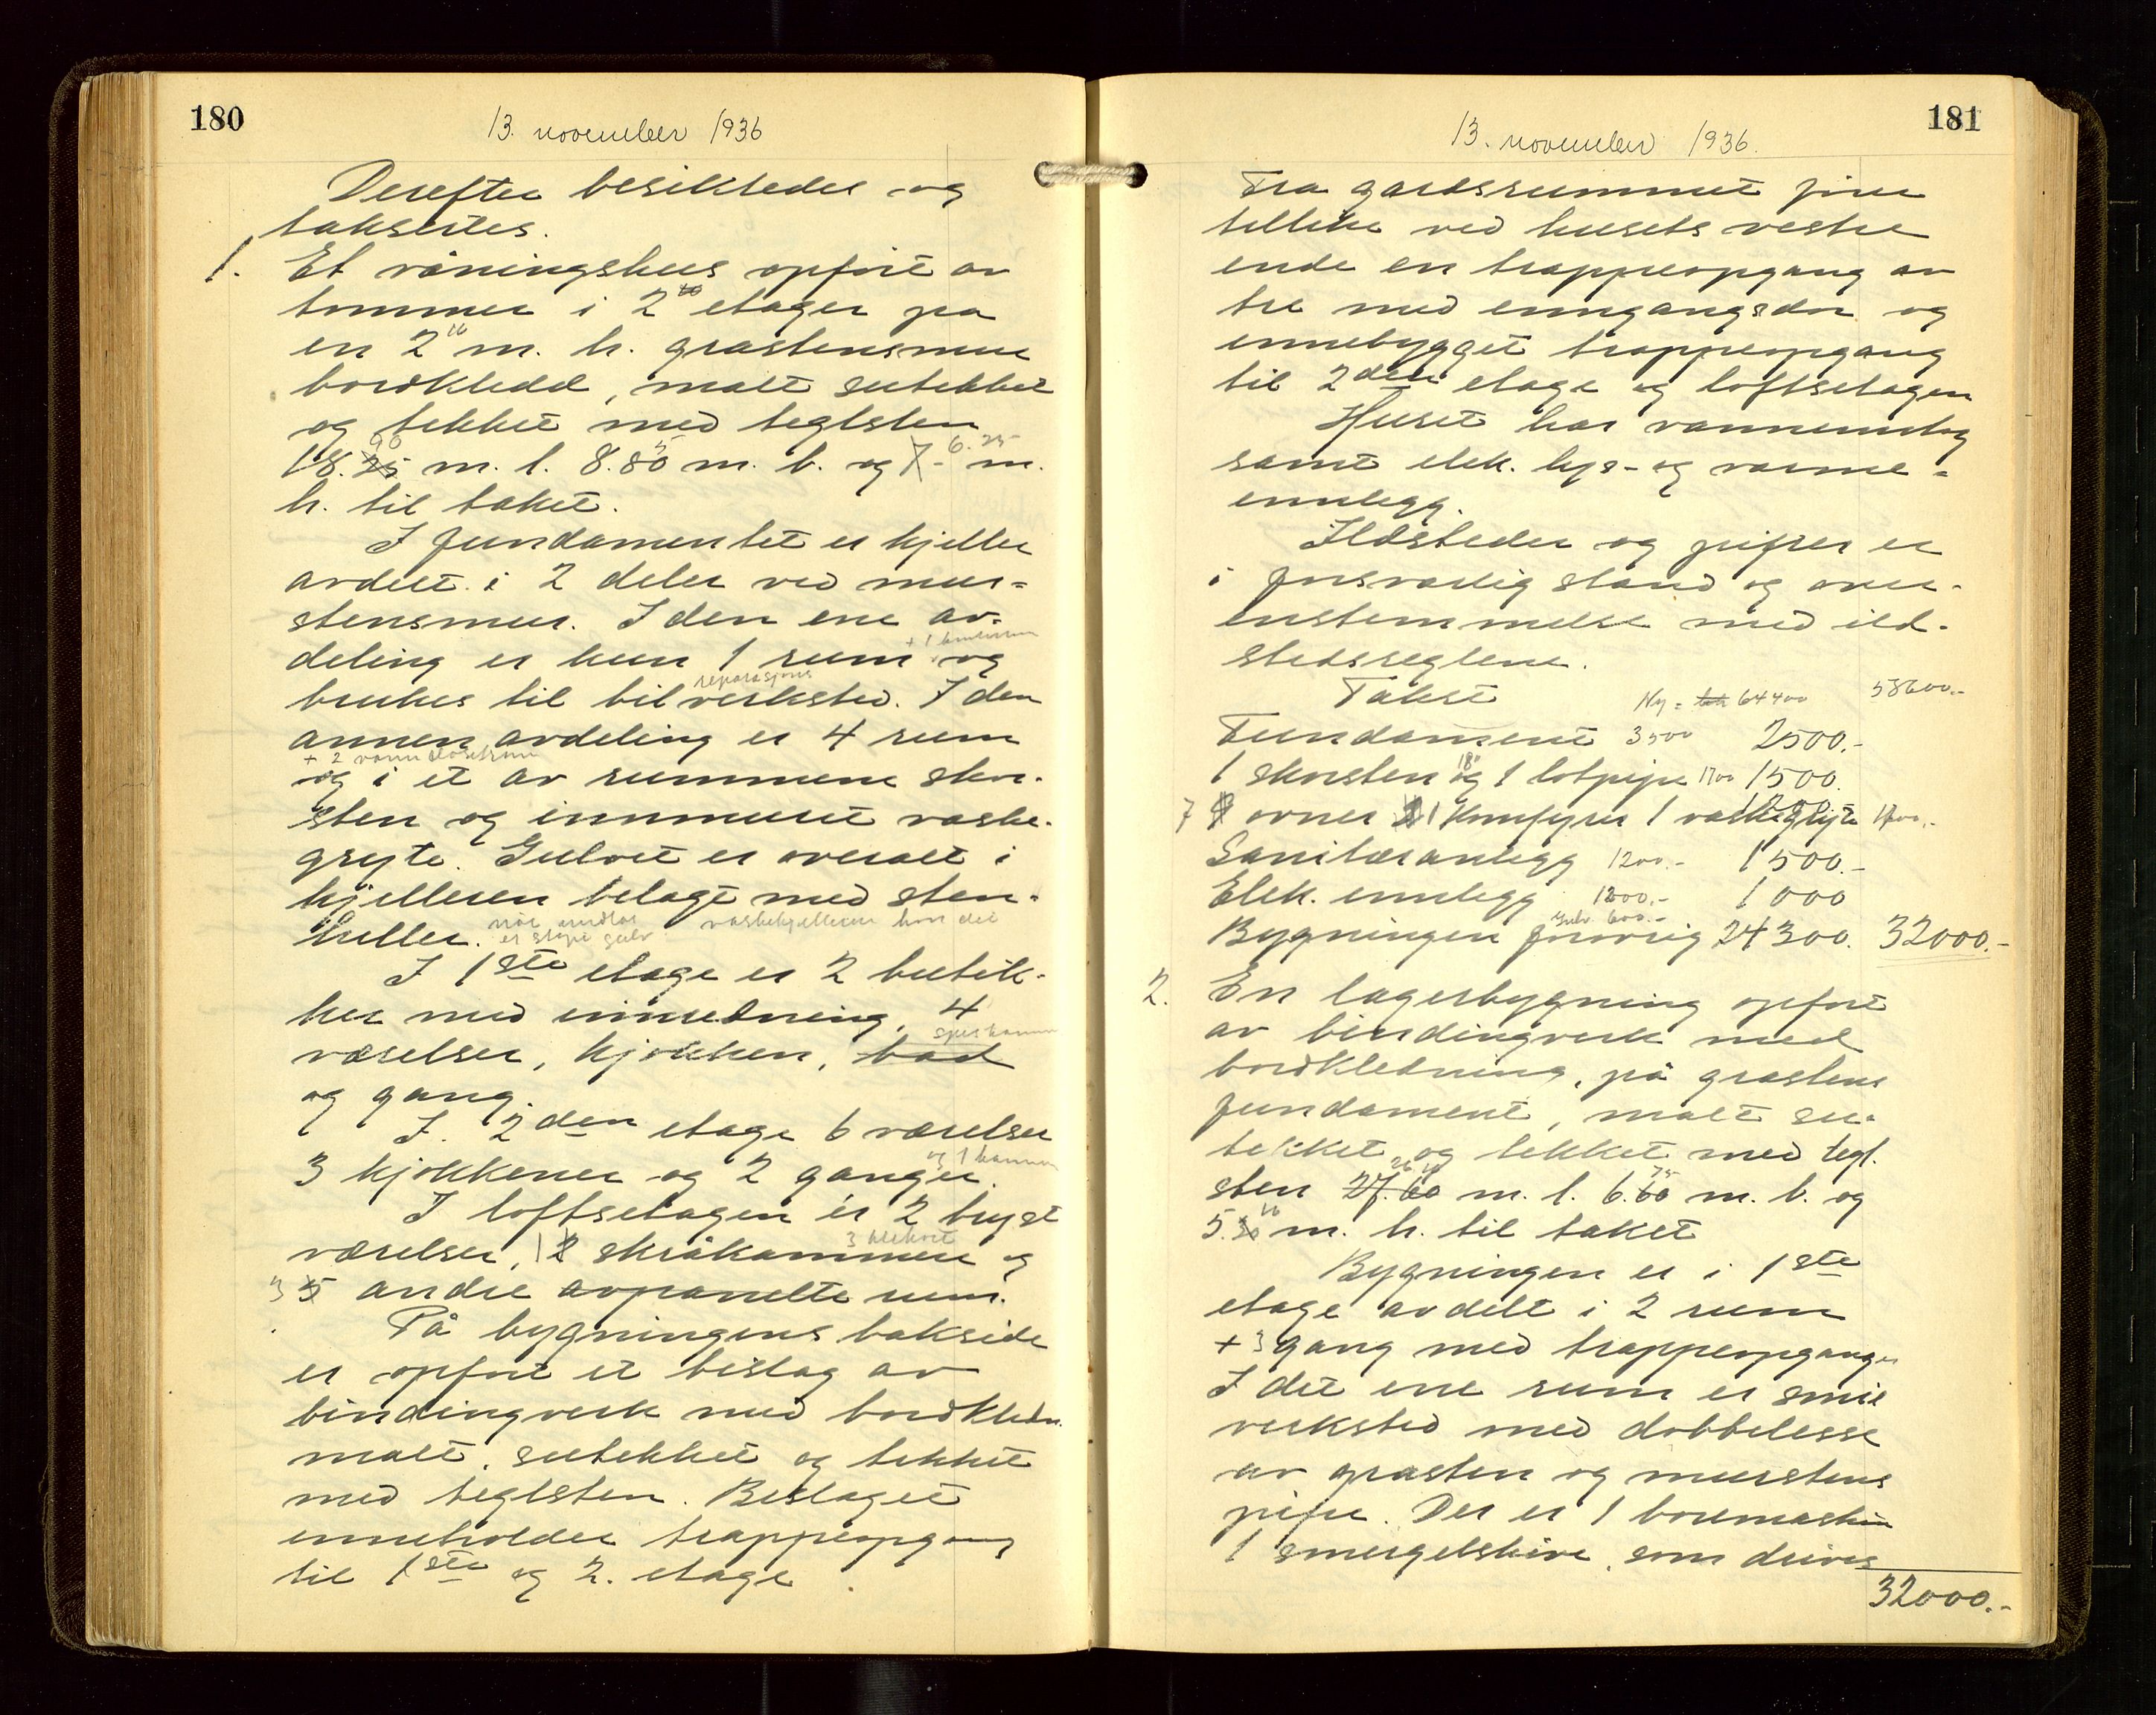 180
13. november 1936
Derefter besiktedes og
taksertes.
1. Et våningshus opført av
tømmer i 2 etager på
en 2 m. h. gråstensmur
bordkledd, malt sutekket
og tekket med teglsten
90 5 6.25
18.35 m. l. 8.80 m. b. og 7.- m.
h. til taket.
I fundamentet er kjeller
avdelt i 2 deler ved mur-
stensmur. I den ene av-
+ 1
deling er kun 1 rum og
reparasjons
brukes til bilverksted. I den
annen avdeling er 4 rum
+ 2 vannklosettrum
og i et av rummene skor-
sten og innmuret vaske-
gryte. Gulvet er overalt i
kjelleren belagt med sten-
heller. når undtas vaskekjelleren hvor det
er støpt gulv
I 1ste etage er 2 butik-
ker med innredning, 4
spiskammer
værelser, kjøkken, bad
og gang.
I 2den etage 6 værelser
og 1 kammer
3 kjøkkener og 2 ganger.
I loftsetagen er 2 kvist
3 klekott
værelser, 1 2 skråkammer og
3 5 andre avpanelte rum.
På bygningens bakside
er opført et bislag av
bindingverk med bordkledn.
malt, sutekket og tekket
med teglsten. Bislaget
inneholder trappeopgang
til 1ste og 2. etage.
181
13. november 1936.
Fra gårdsrummet fører
tillike ved husets vestre
ende en trappeopgang av
tre med inngangsdør og
innebygget trappeopgang
til 2den etage og loftsetagen
Huset har vanninnlegg
samt elek. lys- og varme-
innlegg.
Ildsteder og piper er
i forsvarlig stand og over-
enstemmelse med ild-
stedsreglene.
Takst Ny = 64400 58600.-
Fundament 3500 2500.-
1 skorsten og 1 lotpipe 1700 1500.
7 8 ovner 2 1 komfyrer 1 vaskegryte 1200.-
Sanitæranlegg 1200.- 1500.-
Elek. innlegg 1200.- 1000
gulv 600.-
Bygningen forøvrig 24300. 32000.-
2. En lagerbygning opført
av bindingverk med
bordkledning, på gråstens
fundament, malt su-
tekket og tekket med tegl.
sten 27.60 m. l. 6.60 m. b. og
5.30 m. h. til taket
Bygningen er i 1ste
etage avdelt i 2 rum
+ 3 gang med trappeopganger
I det ene rum er smie
verksted med dobbelesse
av gråsten og murstens
pipe. Der er 1 boremaskin
1 smergelskive, som drives
32000.-